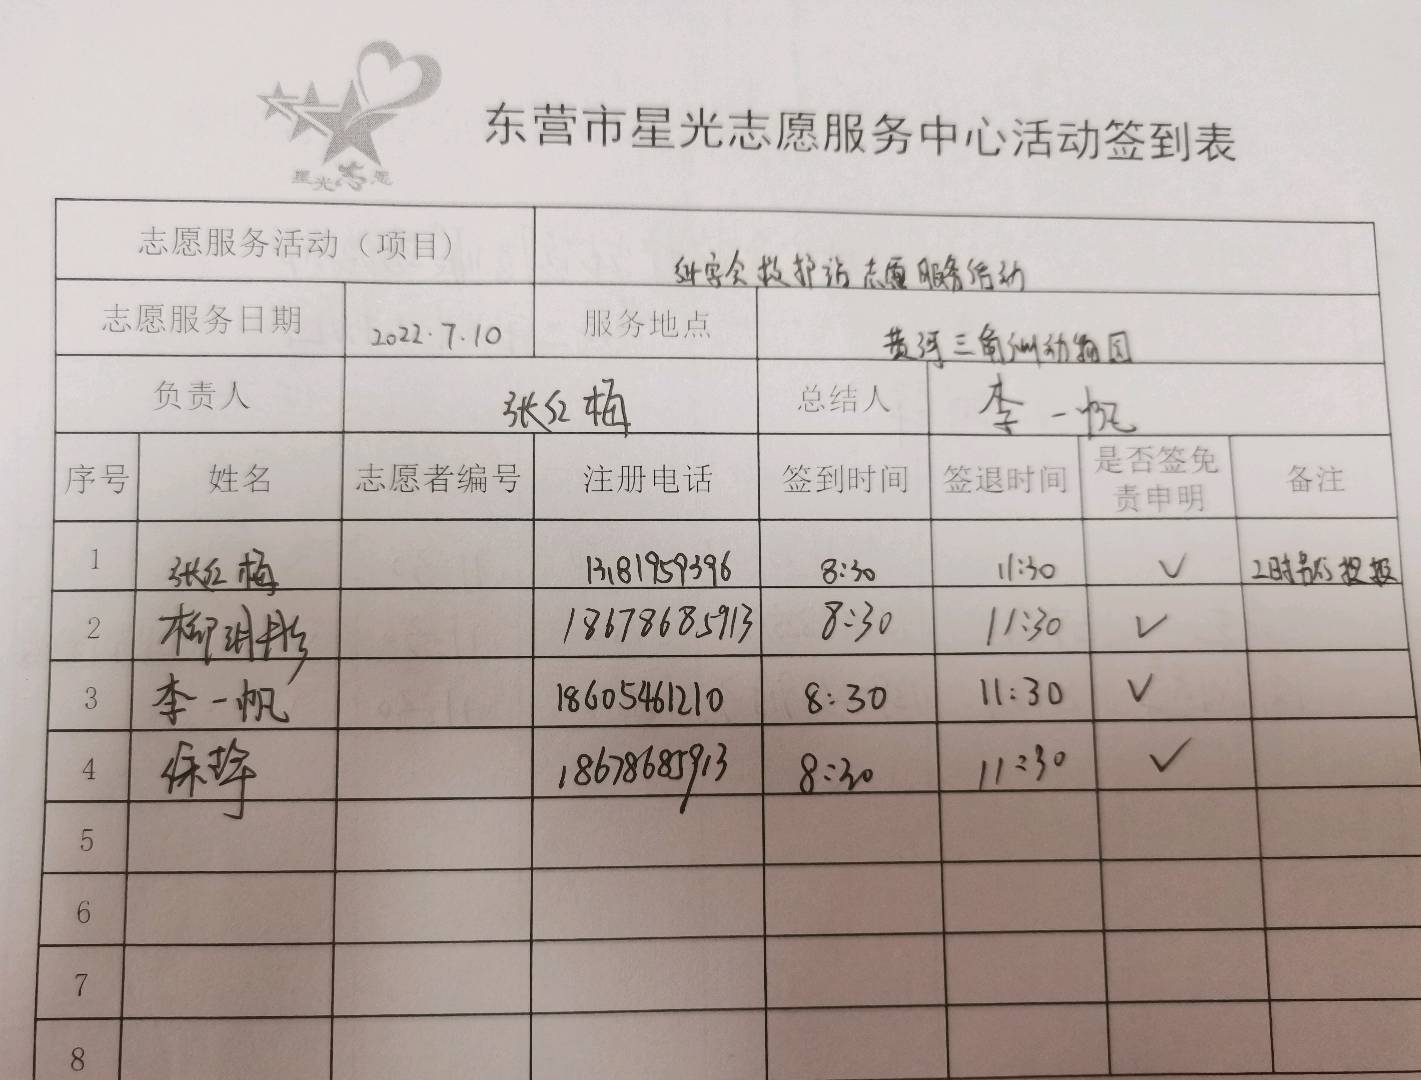 星光志愿
东营市星光志愿服务中心活动签到表
志愿服务活动（项目） 红字会救护站志愿服务活动
志愿服务日期 2022.7.10 服务地点 黄河三角洲动物园
负责人 张红梅 总结人 李一帆
序号 姓名 志愿者编号 注册电话 签到时间 签退时间 是否签免责申明 备注
1 张红梅 13181959396 8:30 11:30 ✓ 2时
2 柳 18678685913 8:30 11:30 ✓
3 李一帆 18605461210 8:30 11:30 ✓
4 18678685913 8:30 11:30 ✓
5
6
7
8